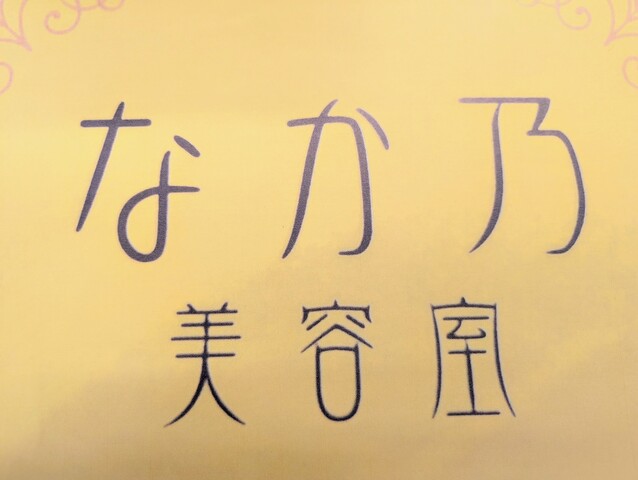 なか乃
美容室